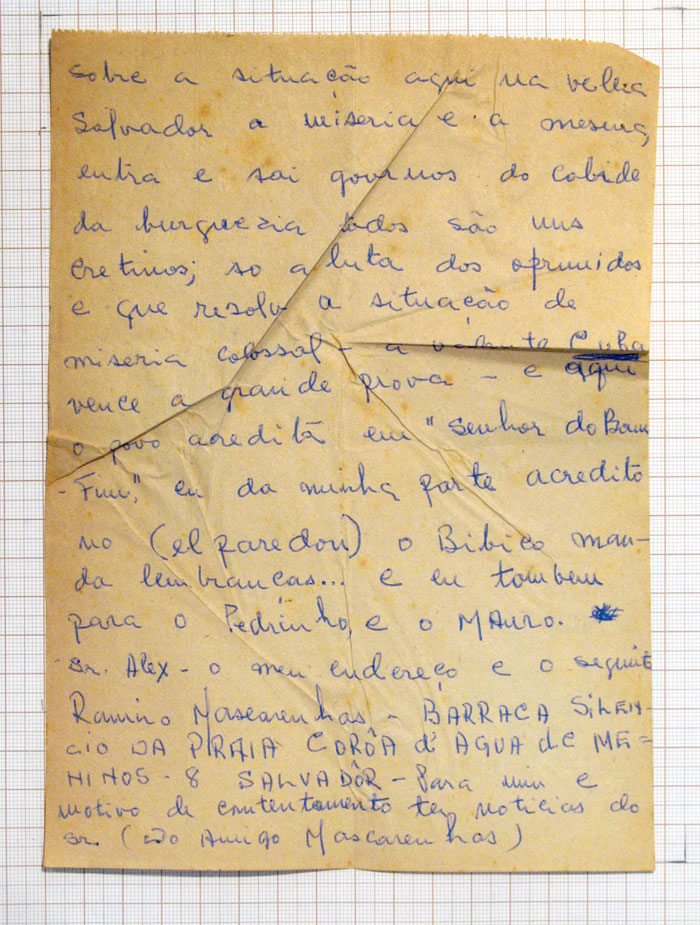 sobre a situação aqui na velha
Salvador a miseria e a mesma,
entra e sai governos do cabide
da burguezia todos são uns
cretinos; so a luta dos oprimidos
e que resolv a situação de
miseria colossal - a valente Cuba
vence a grande prova - e aqui
o povo acreditã em "Senhor do Bom
- Fim", eu da minha parte acredito
no (el paredon) o Bibico man-
da lembranças... e eu tombem
para o Pedrinho, e o MAuro.
sr. Alex - o meu endereço e o seguinte
Ramiro Mascarenhas - BARRACA SiLEN-
cio DA PRAIA CORÔA d' AGUA de ME=
NINOS - 8 SALVADÔR - Para mim e
motivo de contentamento ter noticias do
sr. (do Amigo Mascarenhas)